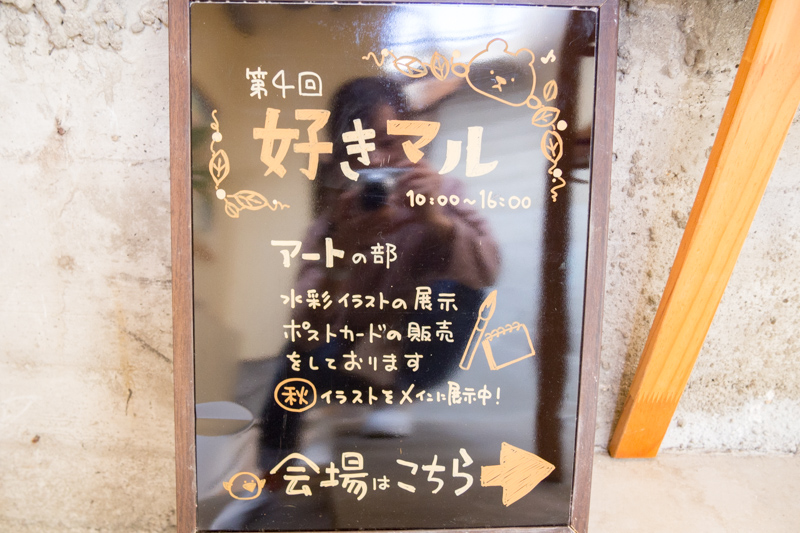 第4回
好きマル
10:00~16:00
アートの部
水彩イラストの展示
ポストカードの販売
をしております
秋 イラストをメインに展示中!
会場はこちら